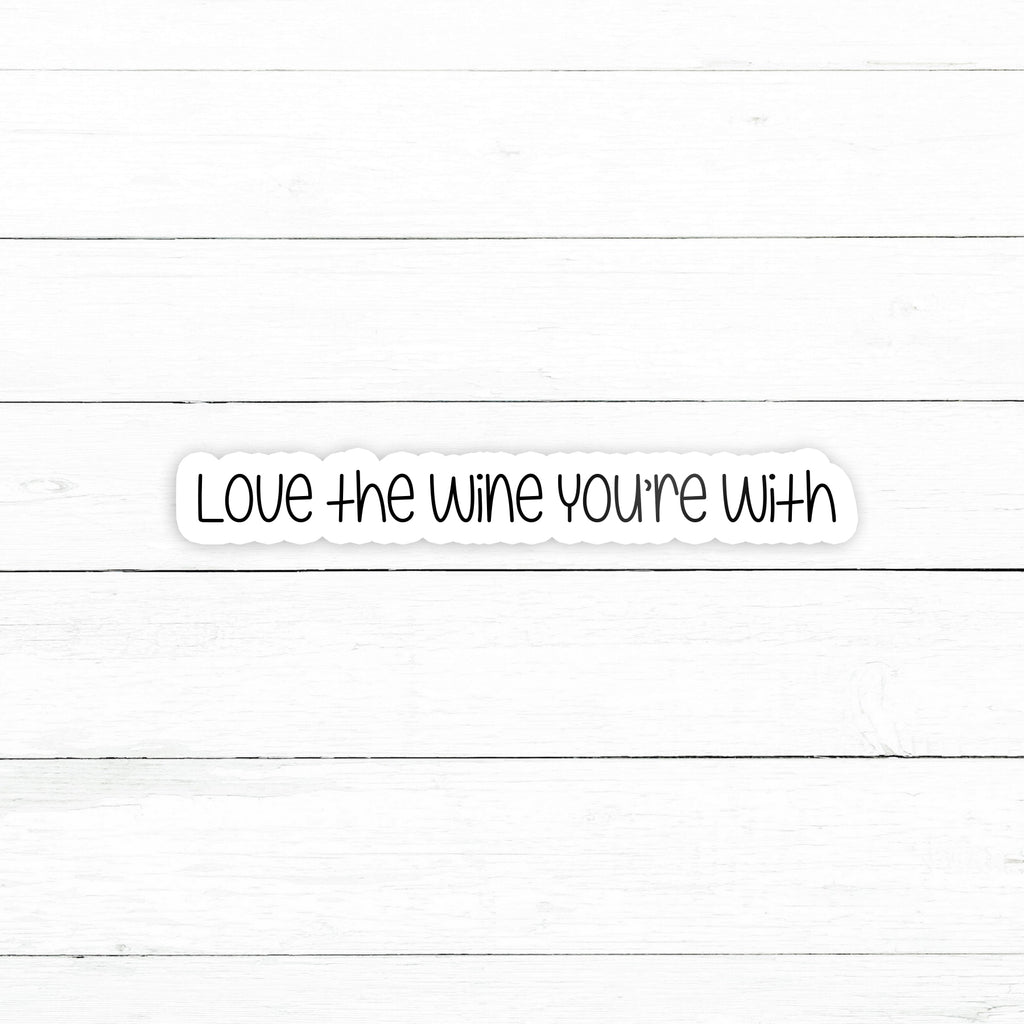 Love the wine you're with